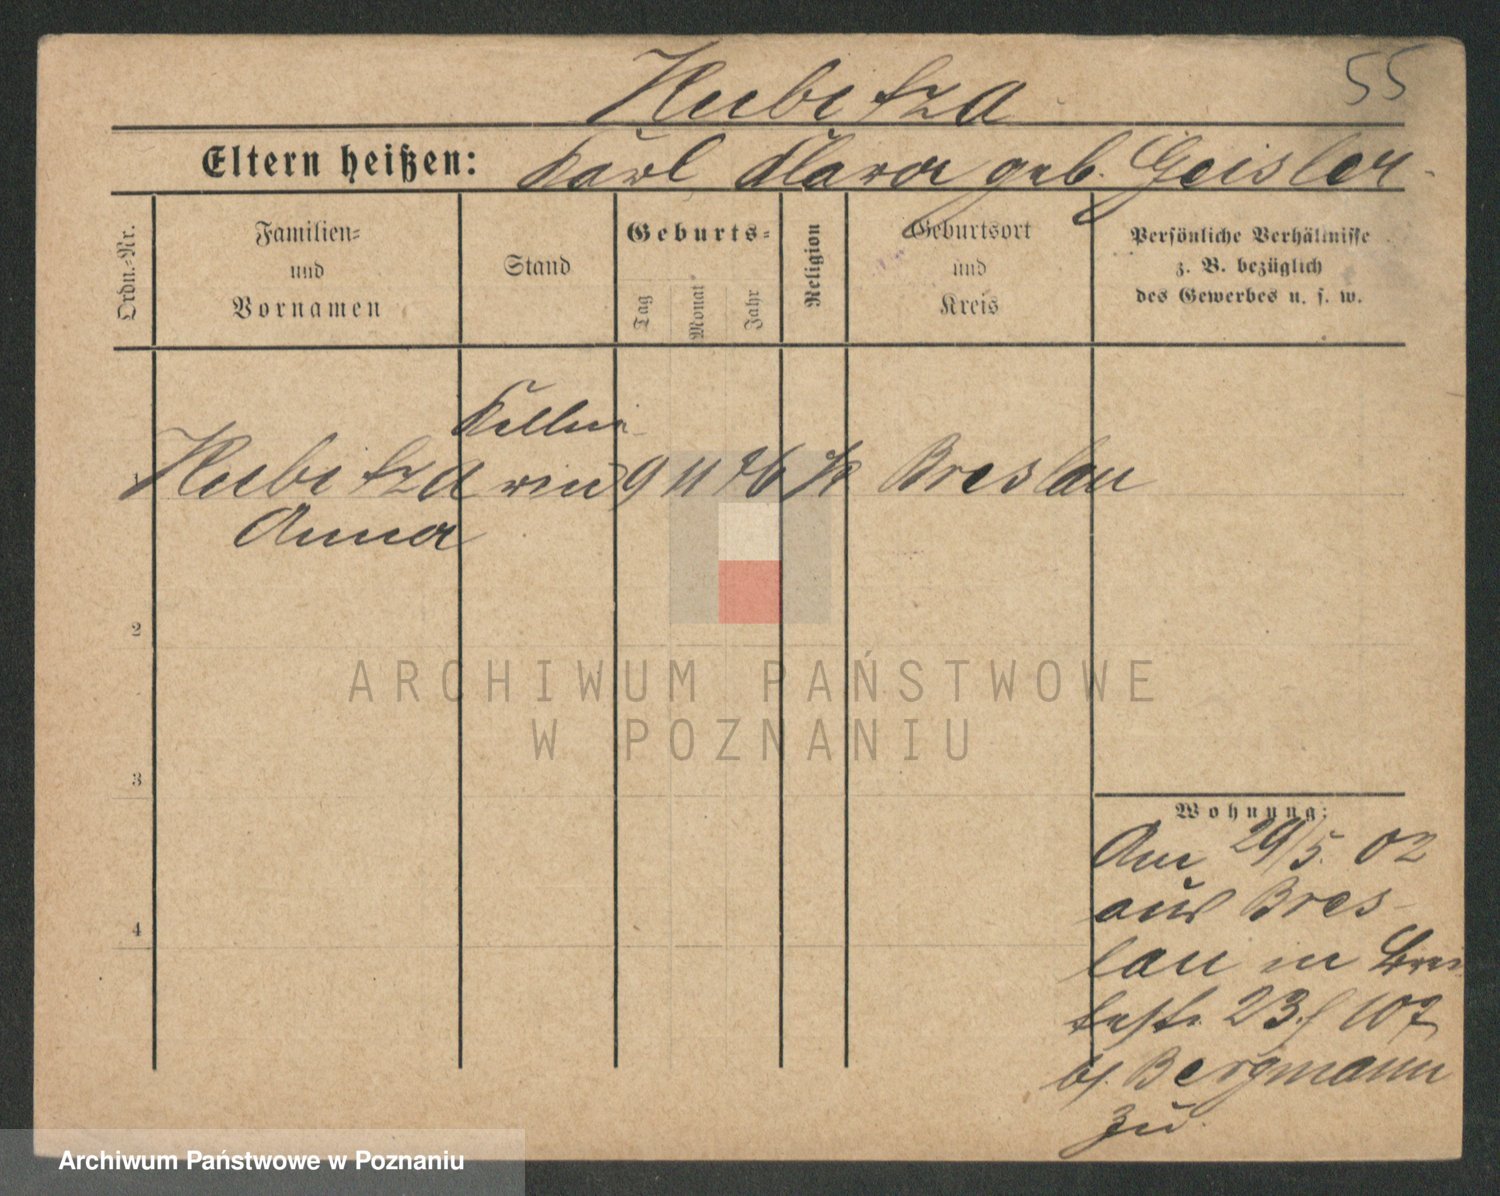 55
Hubitza
Eltern heißen: Karl Klara geb. Geisler
Ordn.-Nr.
Familien-
und
Vornamen
Stand
Geburts-
Tag
Monat
Jahr
Religion
Geburtsort
und
Kreis
Persönliche Verhältnisse
z. B. bezüglich
des Gewerbes u. s. w.
Kellne-
1 Hubitza rin 9 11 76 k Breslau
Anna
2
3
4
Wohnung:
Am 29/5. 02
aus Bres-
lau in Brei
testr. 23 107
bei Bergmann
zu.
ARCHIWUM PAŃSTWOWE
W POZNANIU
Archiwum Państwowe w Poznaniu